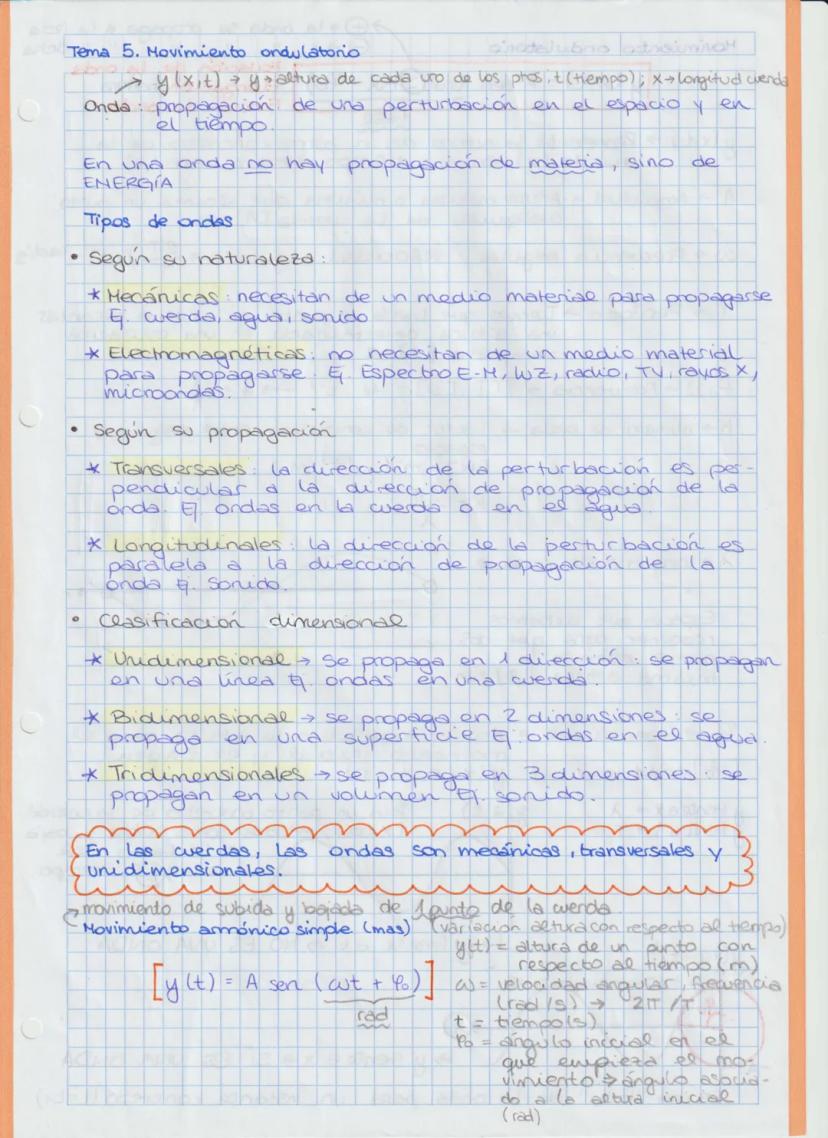 Tema 5. Movimiento ondulatorio
→ y(x,t) → y→altura de cada uno de los ptos, t(tiempo); x→longitud cuerda
Onda: propagación de una perturbación en el espacio y en
el tiempo.
En una onda no hay propagación de materia, sino de
ENERGÍA
Tipos de ondas
• Según su naturaleza:
* Mecánicas: necesitan de un medio material para propagarse
Ej. cuerda, agua, sonido
* Electromagnéticas: no necesitan de un medio material
para propagarse. Ej. Espectro E-M, WZ, radio, TV, rayos X,
microondas.
• Según su propagación
* Transversales: la dirección de la perturbación es per-
pendicular a la dirección de propagación de la
onda. Ej ondas en la cuerda o en el agua.
* Longitudinales: la dirección de la perturbación es
paralela a la dirección de propagación de la
onda Ej. Sonido.
• Clasificación dimensional
* Unidimensional → Se propaga en 1 dirección: se propagan
en una línea Ej. ondas en una cuerda.
* Bidimensional → se propaga en 2 dimensiones: se
propaga en una superficie Ej. ondas en el agua.
* Tridimensionales → se propaga en 3 dimensiones: se
propagan en un volumen Ej. sonido.
En las cuerdas, las ondas son mecánicas, transversales y
unidimensionales.
→ movimiento de subida y bajada de 1 punto de la cuerda.
Movimiento armónico simple (mas) (variación altura con respecto al tiempo)
y(t) = altura de un punto con
respecto al tiempo (m)
[y(t) = A sen (ωt + φ₀)]
rad
ω = velocidad angular, frecuencia
(rad/s) → 2π/T
t = tiempo(s)
φ₀ = ángulo inicial en el
que empieza el mo-
vimiento → ángulo asocia-
do a la altura inicial
(rad)